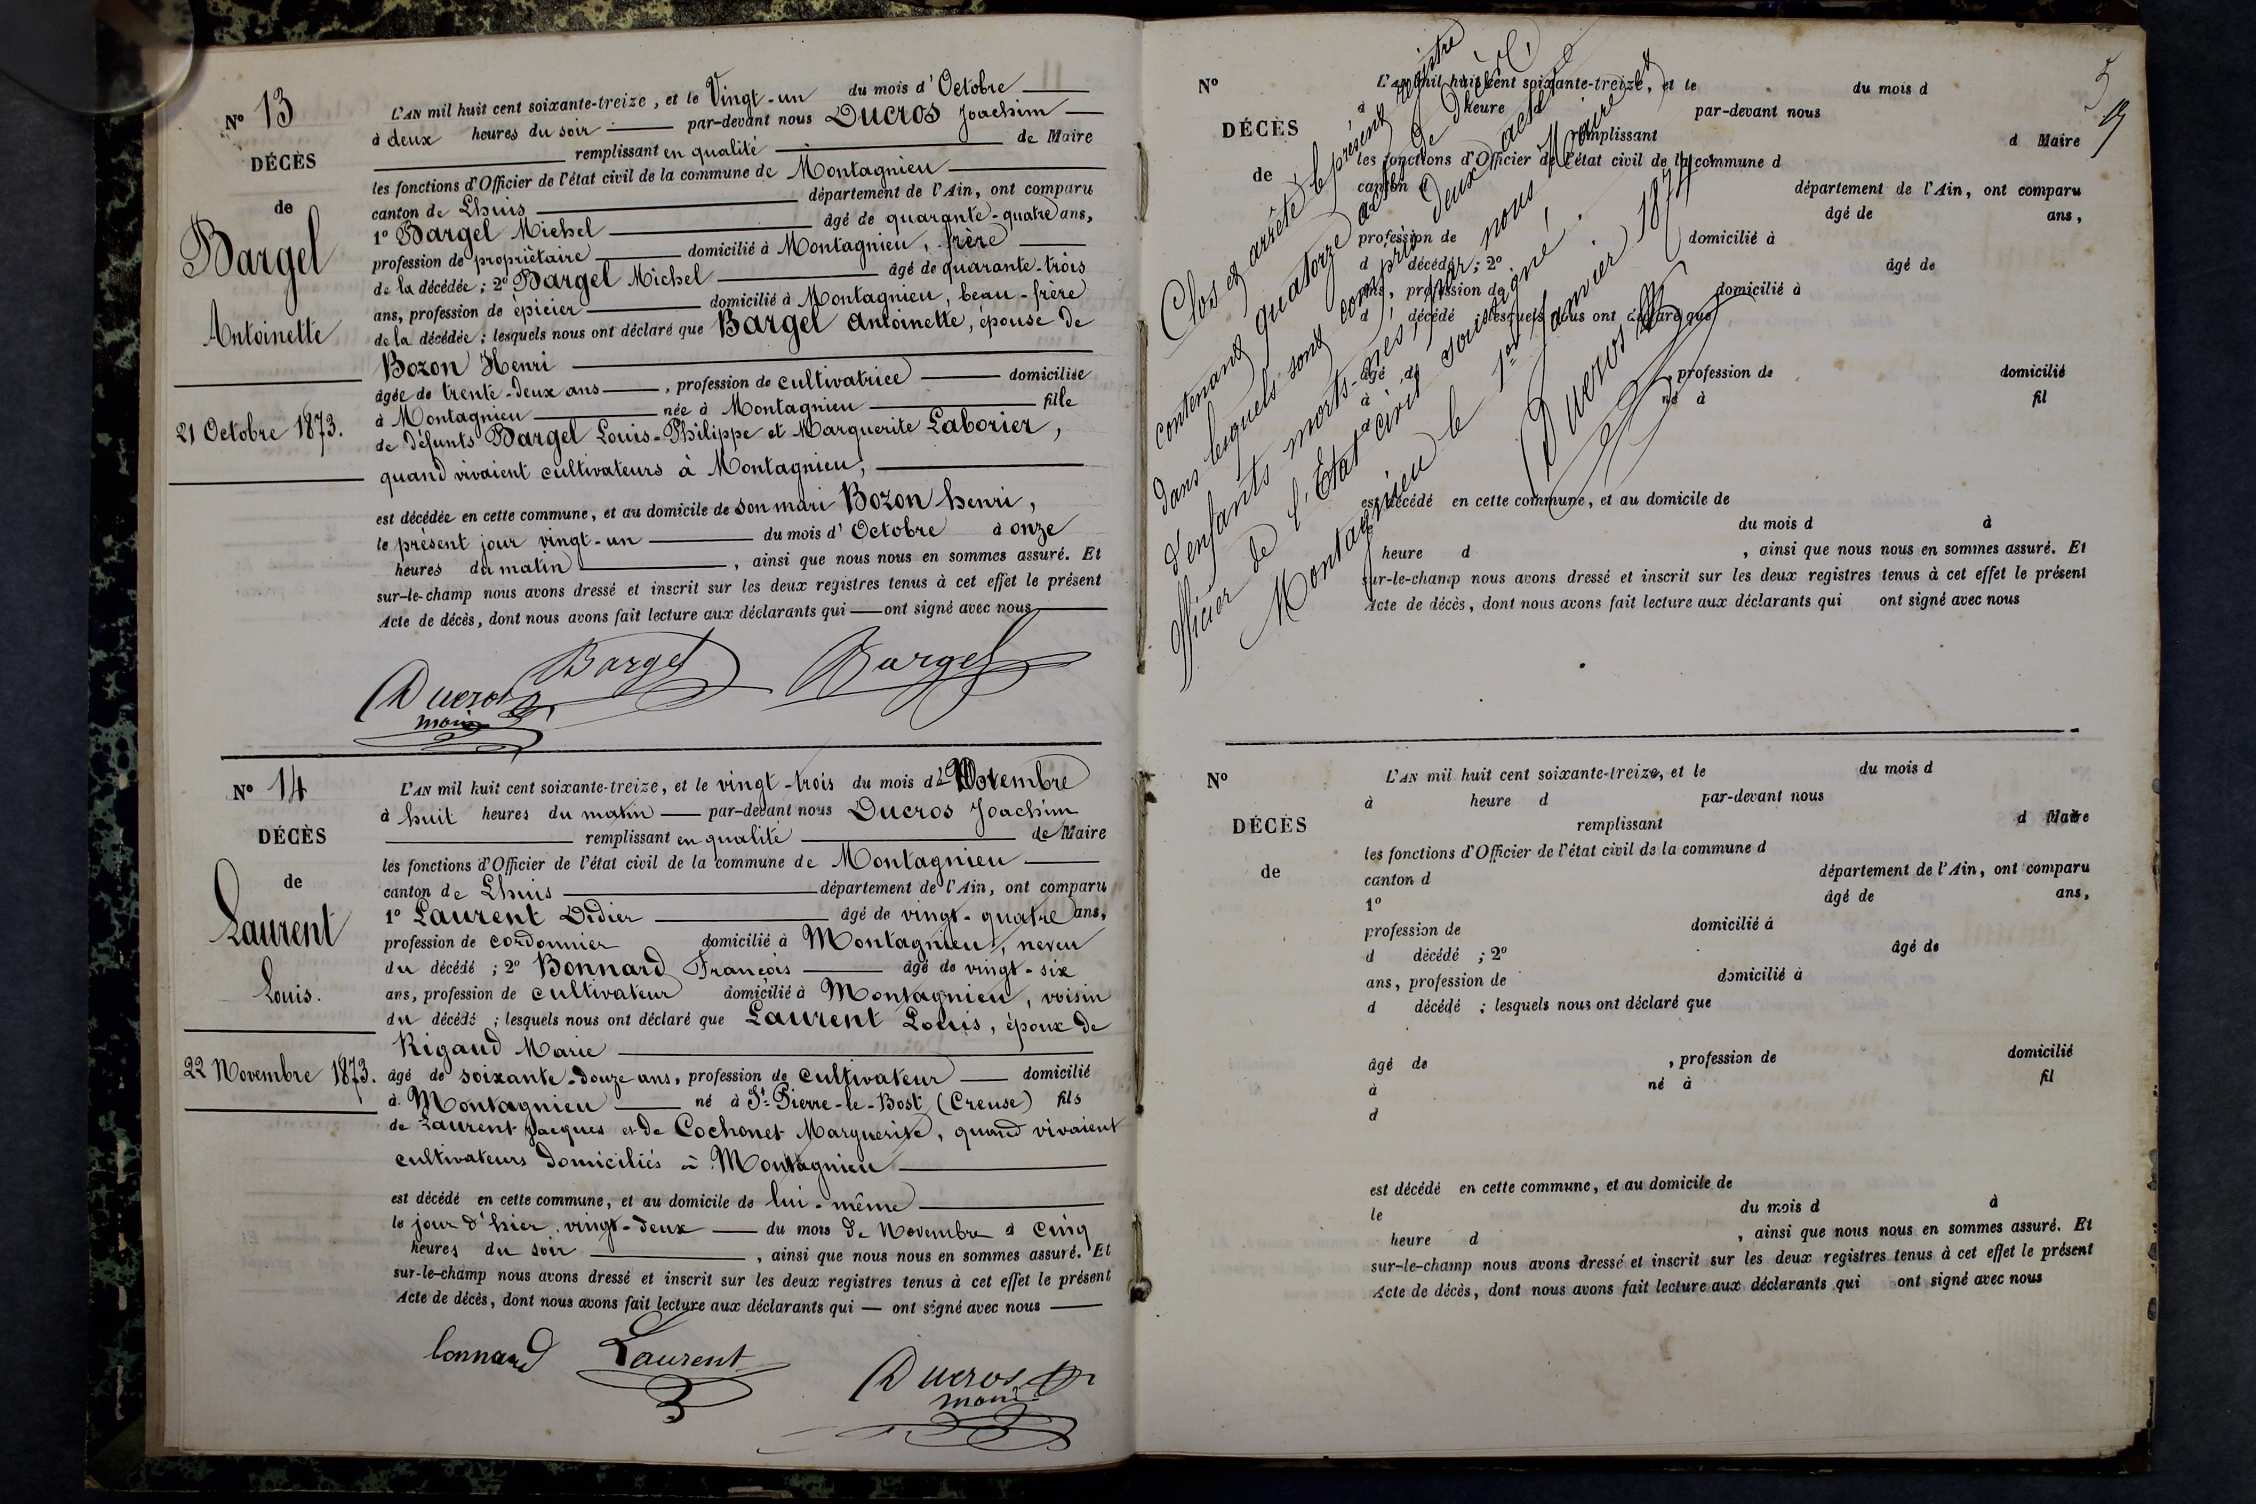 N° 13
DÉCÈS
de
Bargel
Antoinette
21 Octobre 1873.
L'AN mil huit cent soixante-treize, et le Vingt-un du mois d'Octobre
à deux heures du soir par-devant nous Ducros Joachim
remplissant en qualité de Maire
les fonctions d'Officier de l'état civil de la commune de Montagnieu
canton de Lhuis département de l'Ain, ont comparu
1° Bargel Michel âgé de quarante-quatre ans,
profession de propriétaire domicilié à Montagnieu, frère
de la décédée ; 2° Bargel Michel âgé de quarante-trois
ans, profession de épicier domicilié à Montagnieu, beau-frère
de la décédée ; lesquels nous ont déclaré que Bargel Antoinette, épouse de
Bozon Henri
âgée de trente-deux ans, profession de cultivatrice domiciliée
à Montagnieu née à Montagnieu fille
de défunts Bargel Louis-Philippe et Marguerite Laborier,
quand vivaient cultivateurs à Montagnieu,
est décédée en cette commune, et au domicile de son mari Bozon henri,
le présent jour vingt-un du mois d'Octobre à onze
heures du matin, ainsi que nous nous en sommes assuré. Et
sur-le-champ nous avons dressé et inscrit sur les deux registres tenus à cet effet le présent
Acte de décès, dont nous avons fait lecture aux déclarants qui ont signé avec nous
Bargel Bargel
Ducros
maire
N° 14
DÉCÈS
de
Laurent
Louis.
22 Novembre 1873.
L'AN mil huit cent soixante-treize, et le vingt-trois du mois de Novembre
à huit heures du matin par-devant nous Ducros Joachim
remplissant en qualité de Maire
les fonctions d'Officier de l'état civil de la commune de Montagnieu
canton de Lhuis département de l'Ain, ont comparu
1° Laurent Didier âgé de vingt-quatre ans,
profession de cordonnier domicilié à Montagnieu, neveu
du décédé ; 2° Bonnard François âgé de vingt-six
ans, profession de cultivateur domicilié à Montagnieu, voisin
du décédé ; lesquels nous ont déclaré que Laurent Louis, époux de
Rigaud Marie
âgé de soixante-douze ans, profession de cultivateur domicilié
à Montagnieu né à St Pierre-le-Bost (Creuse) fils
de Laurent Jacques et de Cochonet Marguerite, quand vivaient
cultivateurs domiciliés à Montagnieu
est décédé en cette commune, et au domicile de lui-même
le jour d'hier, vingt-deux du mois de Novembre à cinq
heures du soir, ainsi que nous nous en sommes assuré. Et
sur-le-champ nous avons dressé et inscrit sur les deux registres tenus à cet effet le présent
Acte de décès, dont nous avons fait lecture aux déclarants qui ont signé avec nous
bonnard Laurent
Ducros
maire
5
Clos et arrêté le présent registre
contenant quatorze actes de décès,
dans lesquels sont compris deux actes
d'enfants morts-nés, par nous Maire et
officier de l'Etat civil soussigné.
Montagnieu le 1er Janvier 1874.
Ducros
N°
DÉCÈS
de
L'AN mil huit cent soixante-treize, et le du mois d
à heure d par-devant nous
remplissant d Maire
les fonctions d'Officier de l'état civil de la commune d
canton d département de l'Ain, ont comparu
âgé de ans,
profession de domicilié à
d décédé ; 2° âgé de
ans, profession de domicilié à
d décédé ; lesquels nous ont déclaré que
âgé de , profession de domicilié
à né à fil
d
est décédé en cette commune, et au domicile de
le du mois d à
heure d , ainsi que nous nous en sommes assuré. Et
sur-le-champ nous avons dressé et inscrit sur les deux registres tenus à cet effet le présent
Acte de décès, dont nous avons fait lecture aux déclarants qui ont signé avec nous
N°
DÉCÈS
de
L'AN mil huit cent soixante-treize, et le du mois d
à heure d par-devant nous
remplissant d Maire
les fonctions d'Officier de l'état civil de la commune d
canton d département de l'Ain, ont comparu
1° âgé de ans,
profession de domicilié à
d décédé ; 2° âgé de
ans, profession de domicilié à
d décédé ; lesquels nous ont déclaré que
âgé de , profession de domicilié
à né à fil
d
est décédé en cette commune, et au domicile de
le du mois d à
heure d , ainsi que nous nous en sommes assuré. Et
sur-le-champ nous avons dressé et inscrit sur les deux registres tenus à cet effet le présent
Acte de décès, dont nous avons fait lecture aux déclarants qui ont signé avec nous